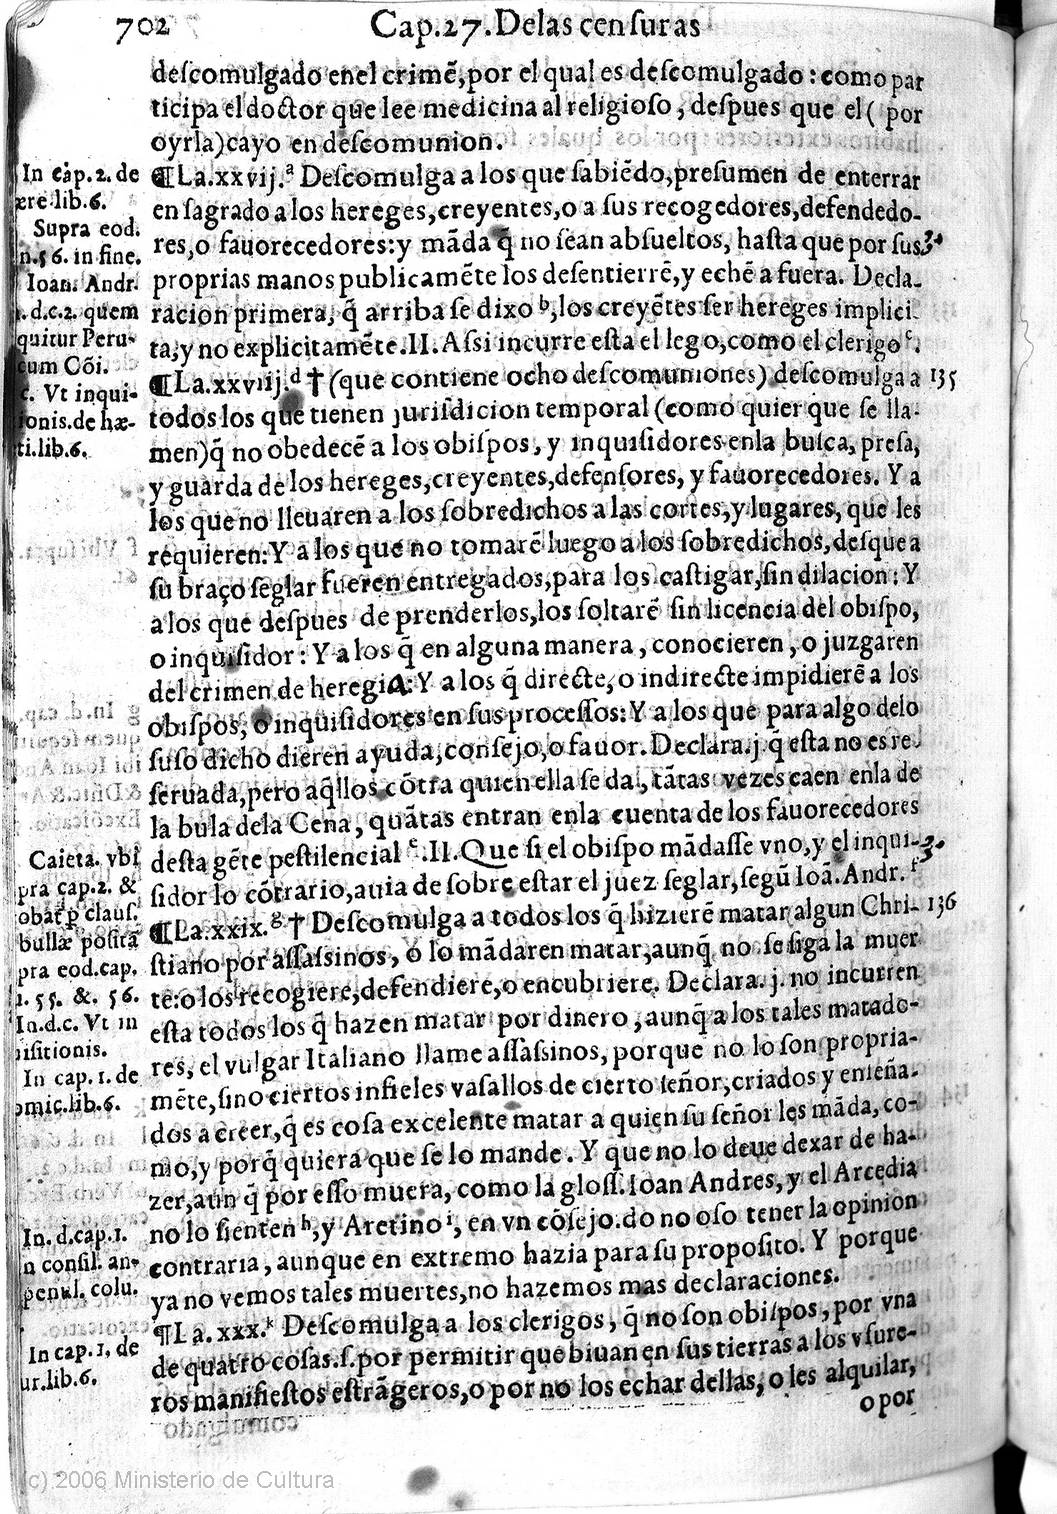 702 Cap.27.Delas censuras
descomulgado enel crimē,por el qual es descomulgado : como par
ticipa el doctor que lee medicina al religioso , despues que el ( por
oyrla)cayo en descomunion.
¶La.xxvij.ª Descomulga a los que sabiēdo,presumen de enterrar
en sagrado a los hereges,creyentes,o a sus recogedores,defendedo-
res,o fauorecedores:y māda q̄ no sean absueltos, hasta que por sus
proprias manos publicamēte los desentierrē,y echē a fuera. Decla-
racion primera, q̄ arriba se dixo ᵇ,los creyētes ser hereges implici-
ta,y no explicitamēte.II.Assi incurre esta el lego,como el clerigo ᶜ.
¶La.xxviij.ᵈ † (que contiene ocho descomuniones) descomulga a 135
todos los que tienen jurisdicion temporal (como quier que se lla-
men)q̄ no obedecē a los obispos, y inquisidores enla busca, presa,
y guarda de los hereges,creyentes,defensores, y fauorecedores. Y a
los que no lleuaren a los sobredichos a las cortes,y lugares, que les
requieren:Y a los que no tomarē luego a los sobredichos,desque a
su braço seglar fueren entregados,para los castigar,sin dilacion : Y
a los que despues de prenderlos,los soltarē sin licencia del obispo,
o inquisidor : Y a los q̄ en alguna manera , conocieren , o juzgaren
del crimen de heregia:Y a los q̄ directe, o indirecte impidierē a los
obispos, o inquisidores en sus processos:Y a los que para algo delo
suso dicho dieren ayuda,consejo,o fauor. Declara.j.q̄ esta no es re-
seruada,pero aq̄llos cōtra quien ella se da, tātas vezes caen enla de
la bula dela Cena, quātas entran enla cuenta de los fauorecedores
desta gēte pestilencial ᵉ.II.Que si el obispo mādasse vno,y el inqui-
sidor lo cōtrario,auia de sobre estar el juez seglar,segū Ioā.Andr. ᶠ
¶La.xxix.ᵍ † Descomulga a todos los q̄ hizierē matar algun Chri- 136
stiano por assassinos, o lo mādaren matar,aunq̄ no se siga la muer
te:o los recogiere,defendiere,o encubriere. Declara. j. no incurren
esta todos los q̄ hazen matar por dinero , aunq̄ a los tales matado-
res, el vulgar Italiano llame assassinos, porque no lo son propria-
mēte,sino ciertos infieles vasallos de cierto señor,criados y enseña-
dos a creer,q̄ es cosa excelente matar a quien su señor les māda, co-
mo,y porq̄ quiera que se lo mande . Y que no lo deue dexar de ha-
zer,aun q̄ por esso muera, como la gloss.Ioan Andres, y el Arcedia
no lo sienten ʰ,y Aretino ⁱ, en vn cōsejo.do no oso tener la opinion
contraria , aunque en extremo hazia para su proposito. Y porque
ya no vemos tales muertes,no hazemos mas declaraciones.
¶La. xxx.ᵏ Descomulga a los clerigos, q̄ no son obispos, por vna
de quatro cosas.s.por permitir que biuan en sus tierras a los vsure-
ros manifiestos estrāgeros,o por no los echar dellas, o les alquilar,
o por
In cap.2. de
ære.lib.6.
Supra eod.
n.56. in fine.
Ioan. Andr.
.d.c.2. quem
quitur Peru-
cum Cōi.
c. Vt inqui-
ionis.de hæ-
ti.lib.6.
Caieta. vbi
pra cap.2. &
clauf.
bullæ positā
pra eod.cap.
1. 55. &. 56.
In.d.c. Vt in
isitionis.
In cap.1. de
omic.lib.6.
In. d.cap.1.
n consil. an-
penul. colu.
In cap.1. de
ur.lib.6.
(c) 2006 Ministerio de Cultura